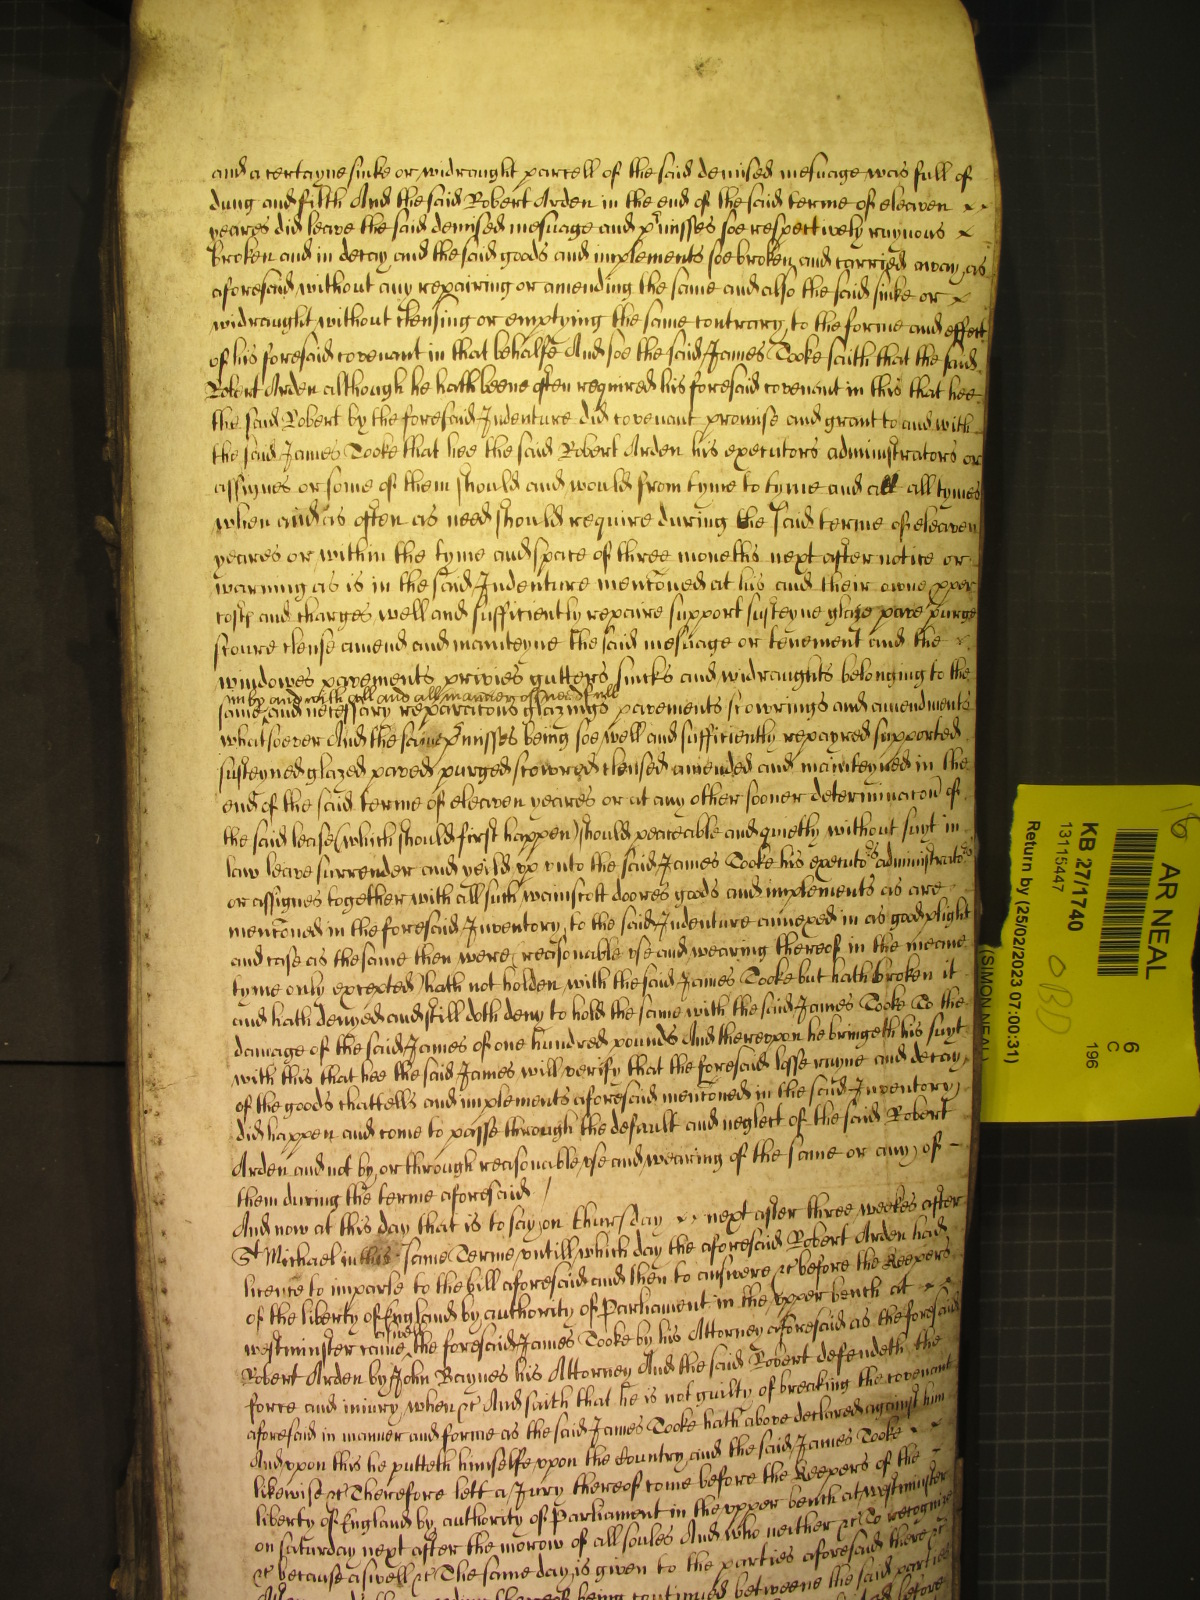 and a certayne sinke or widraught parcell of the said demised mesuage was full of
dung and filth And the said Robert Arden in the end of the said terme of eleaven
yeares did leave the said demised mesuage and p'misses soe respectively ruynous
broken and in decay and the said goods and implements soe broken and carried away as
aforesaid without any repairing or amending the same and also the said sinke or
widraught without clensing or emptying the same contrary to the forme and effect
of his foresaid covenant in that behalfe And soe the said James Tooke saith that the said
Robert Arden although he hath beene often required his foresaid covenant in this that hee
the said Robert by the foresaid Indenture did covenant promise and grant to and with
the said James Tooke that hee the said Robert Arden his executors administrators or
assignes or some of them should and would from tyme to tyme and att all tymes
when and as often as need should require during the said terme of eleaven
yeares or within the tyme and space of three moneths next after notice or
warning as is in the said Indenture menconed at his and their owne pper
costs and charges well and sufficiently repaire support susteyne glaze pave purge
scoure clense amend and mainteyne the said mesuage or tenement and the
windowes pavements privies gutters sincks and widraughts belonging to the
in by and with all and all manner of needfull
same and necessary reparacons glazings pavements scowrings and amendments
whatsoever And the same p'misses being soe well and sufficiently repayred supported
susteyned glazed paved purged scowred clensed amended and mainteyned in the
end of the said terme of eleaven yeares or at any other sooner determinacon of
the said lease (which should first happen) should peaceable and quietly without suyt in
law leave surrender and yeild vp vnto the said James Tooke his executors administrators
or assignes together with all such wainscott doores goods and implements as are
menconed in the foresaid Inventory to the said Indenture annexed in as good plight
and case as the same then were (reasonable vse and wearing thereof in the meane
tyme only excepted) hath not holden with the said James Tooke but hath broken it
and hath denyed and still doth deny to hold the same with the said James Tooke To the
damage of the said James of one hundred pounds And therevpon he bringeth his suyt
with this that hee the said James will verify that the foresaid losse ruyne and decay
of the goods chattells and implements aforesaid menconed in the said Inventory
did happen and come to passe through the default and neglect of the said Robert
Arden and not by or through reasonable vse and wearing of the same or any of
them during the terme aforesaid /
And now at this day that is to say on thursday next after three weekes after
St Michael in this same Terme vntill which day the aforesaid Robert Arden had
licence to imparle to the bill aforesaid and then to answere &c before the Keepers
of the liberty of England by authority of Parliament in the vpper bench at
westminster came aswell the foresaid James Tooke by his Attorney aforesaid as the foresaid
Robert Arden by John Baynes his Attorney And the said Robert defendeth the
force and iniury when &c And saith that he is not guilty of breaking the covenant
aforesaid in manner and forme as the said James Tooke hath above declared against him
And vpon this he putteth himselfe vpon the Country and the said James Tooke
likewise &c Therefore lett a Jury thereof come before the Keepers of the
liberty of England by authority of Parliament in the vpper bench at westminster
on saturday next after the morow of all soules And who neither &c To recognize
&c because aswell &c The same day is given to the parties aforesaid there &c
being continued betweene the said parties
AR NEAL
KB 27/1740
13115447
Return by (25/02/2023 07:00:31)
(SIMON NEAL)
6
C
196
16